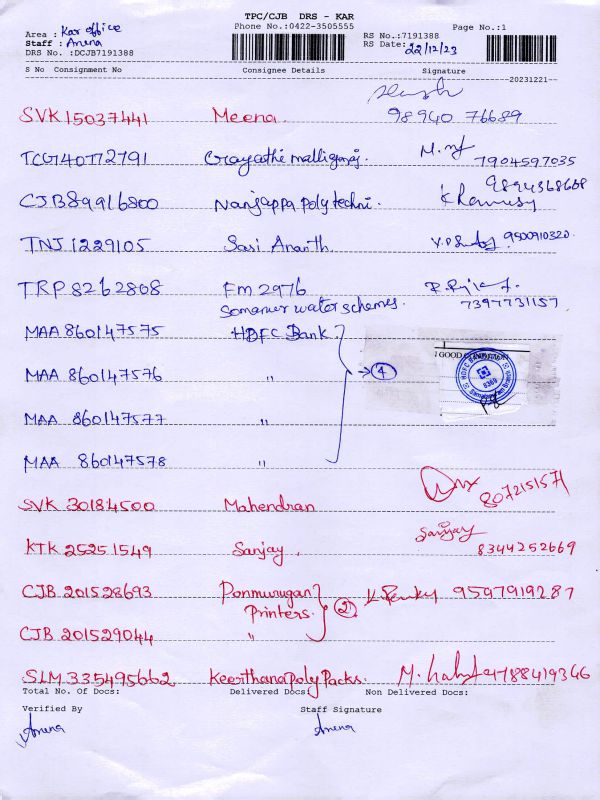 TPC/CJB DRS - KAR
Phone No.:0422-3505555
Page No.:1
Area : Kar office
Staff : Anena
DRS No. :DCJB7191388
RS No.:7191388
RS Date: 22/12/23
S No Consignment No Consignee Details Signature
20231221
SVK 15037441 Meena. 98940 76689
TCG140772791 7904597035
CJB89916800 Nanjappa polytechni. 9894368668
TNJ 1229105 Sasi Ananth. 9500910320
TRP 8262808 FM 2976 7397731157
water schemes.
MAA 860147575 HDFC Bank
MAA 860147576 " → 4
MAA 860147577 "
MAA 860147578 "
SVK 30184500 Mahendran 8072151571
KTK 25251549 Sanjay. Sanjay 8344252669
CJB 201528693 Ponmurugan 9597919287
Printers. 2
CJB 201529044 "
SLM 335495662 Keerthana Poly Packs. 9788419346
Total No. Of Docs: Delivered Docs: Non Delivered Docs:
Verified By Staff Signature
Anena Anena